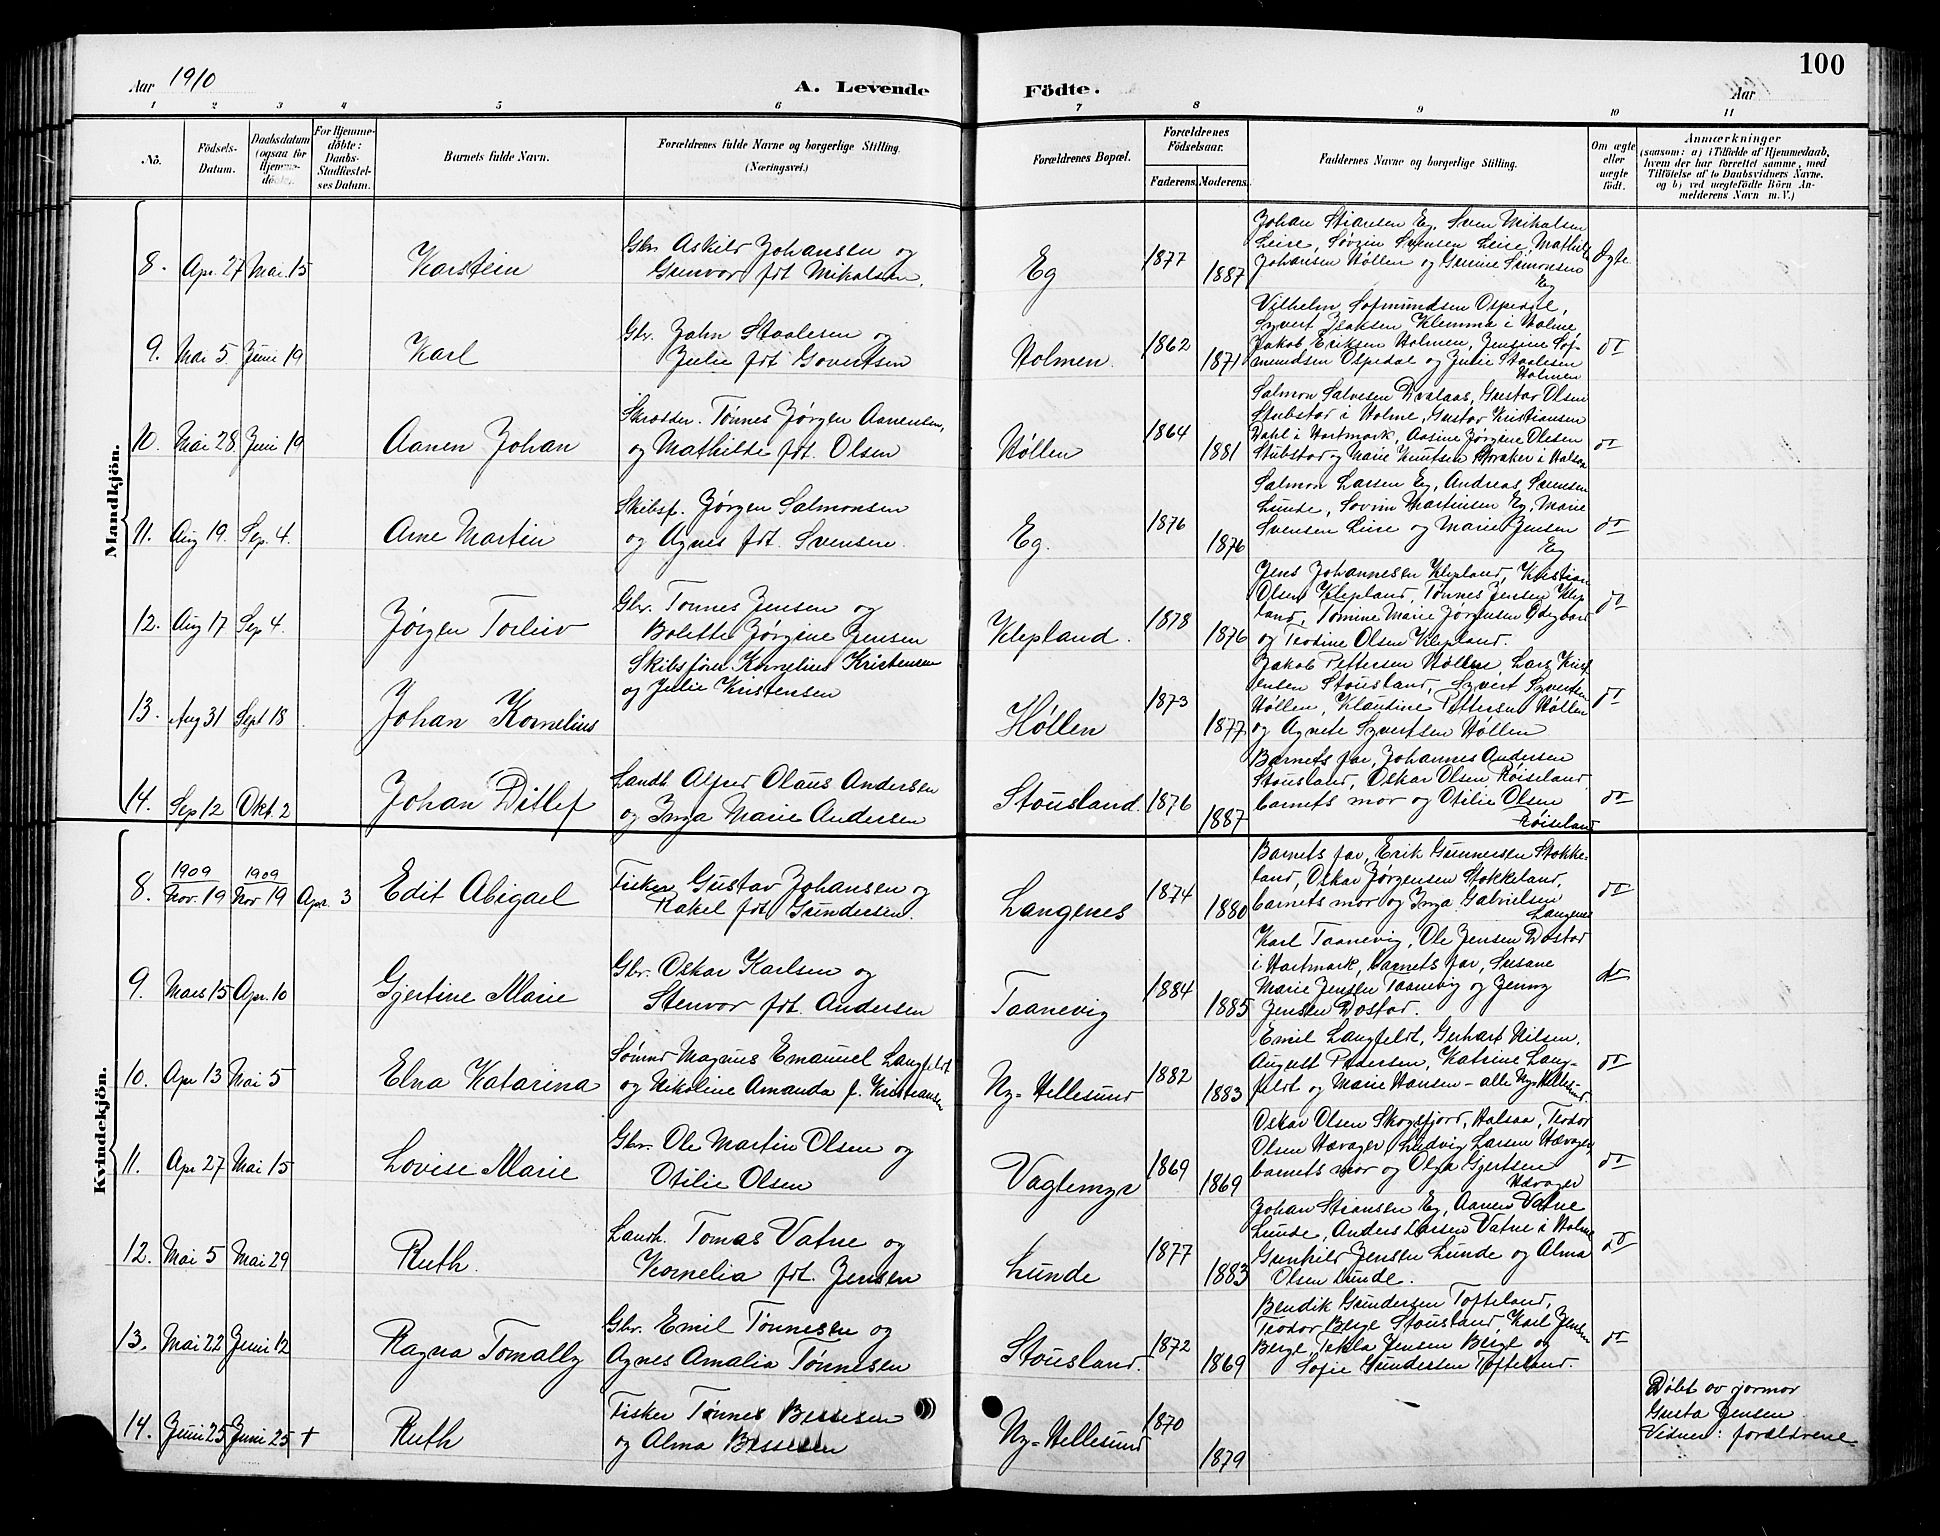 100
Aar 1910
A. Levende Födte.
Aar
1 2 3 4 5 6 7 8 9 10 11
Nô.
Födsels-Datum.
Daabsdatum (ogsaa for Hjemme-döbte.
For Hjemme-döbte: Daabs-Stadfæstel-ses Datum.
Barnets fulde Navn.
Forældrenes fulde Navne og borgerlige Stilling.
(Næringsvei.)
Forældrenes Bopæl.
Forældrenes Födselsaar.
Faderens. Moderens.
Faddernes Navne og borgerlige Stilling.
Om ægte eller uægte födt.
Anmærkninger
(saasom: a) i Tilfælde af Hjemmedaab,
hvem der har forrettet samme, med
Tilföielse af to Daabsvidners Navne.
og b) ved uægtefödte Börn An-
melderens Navn m. V.)
Mandkjön.
8. Apr. 27 Mai 15
Karstein
Gbr Askild Johansen og
Gunvor fdt Mikalsen.
Eg
1877
1887
Johan Stiansen Eg, Sven Mikalsen
Leire, Sørin Svensen Leire, Mathilde
Johansen Høllen og Gurine Simonsen
Eg
Ægte
9. Mai 5. Juni 19
Karl
Gbr. John Staalesen og
Julie fdt Govertsen
Holmen.
1862
1871
Vilhelm Sofmundsen Ospedal,
Syvert Isaksen Klemma i Holme,
Jakob Eriksen Holmen, Jensine Sof-
mundsen Ospedal og Julie Staalesen
Holmen
do
10. Mai 28. Juni 19
Aanen Johan
Skrædder. Tønnes Jørgen Aanensen,
og Mathilde fdt. Olsen
Høllen
1864
1881
Salmon Salvesen Dvalaas, Gustav Olsen
Stubstad i Holme, Gustav Kristiansen
Dahl i Hartmark, Aasine Jørgine Olesen
Stubstad og Marie Knutsen Storaker i Halsaa
do
11. Aug 19. Sep. 4.
Arne Martin
Skibsf. Jørgen Salmonsen
og Agnes fdt. Svensen.
Eg.
1876
1876
Salmon Larsen Eg, Andreas Sørensen
Lunde, Sovin Martinsen Eg, Marie
Svensen Leire og Marie Jensen
Eg
do
12. Aug 17 Sep 4.
Jørgen Torleiv
Gbr. Tønnes Jensen og
Bolette Jørgine Jensen
Klepland.
1878
1876
Jens Johannesen Klepland, Kristian
Olsen Klepland, Tønnes Jensen Klep
land, Tomine Marie Jørgensen Ødegaard
og Teodine Olsen Klepland.
do
13. Aug 31 Sept 18
Johan Kornelius
Skibsfører Kornelius Kristensen
og Julie Kristensen
Høllen
1873
1877
Jakob Pettersen Høllen, Lars Krist
ensen Stousland, Syvert Syvertsen
Høllen, Klaudine Pettersen Høllen
og Agnete Syvertsen Høllen
do
14. Sep 12 Okt. 2
Johan Ditlef
Landh. Alfred Olaus Andersen
og Inga Marie Andersen
Stousland.
1876
1887
Barnets far, Johannes Andersen
Stousland, Oskar Olsen Røiseland
barnets mor og Otilie Olsen
Røiseland
do
Kvindekjön.
8. 1909 Nov. 19 1909 Nov 19 Apr. 3
Edit Abigael
Fisker Gustav Johansen og
Rakel fdt Gundersen.
Langenes
1874
1880
Barnets far, Erik Gunnersen Stokke-
land, Oskar Jørgensen Stokkeland,
barnets mor og Inga Gabrielsen
Langenes
do
9. Mars 15 Apr. 10
Gjertine Marie
Gbr. Oskar Karlsen og
Stenvor fdt. Andersen
Taanevig
1884
1885
Karl Taanevig, Ole Jensen Dostad
i Hartmark, barnets far, Susane
Marie Jensen Taanevig og Jenny
Jensen Dostad.
do
10. Apr 13 Mai 5
Elna Katarina
Sømd Magnus Emanuel Langfeldt
og Nikoline Amanda f. Kristiansen
Ny=Hellesund
1882
1883
Emil Langfeldt, Gerhart Nilsen,
August Pedersen, Katrine Lang-
feldt og Marie Hansen – alle Ny=Helles-
und.
do
11. Apr 27 Mai 15
Lovise Marie
Gbr. Ole Martin Olsen og
Otilie Olsen
Vagtemyr
1869
1869
Oskar Olsen Skogsfjord, Halsaa, Teodor
Olsen Hævager, Ludvig Larsen Hævager,
barnets mor og Olga Gjertsen
Hævager
do
12. Mai 5 Mai 29
Ruth.
Landh. Tomas Vatne og
Kornelia fdt. Jensen
Lunde
1877
1883
Johan Stiansen Eg, Aanen Vatne
Lunde, Anders Larsen Vatne i Holme
Gunhild Jensen Lunde og Alma
Olsen Lunde.
do
13. Mai 22 Juni 12
Ragna Tomally
Gbr. Emil Tønnesen og
Agnes Amalia Tønnesen
Stousland.
1872
1869
Bendik Gundersen Tofteland,
Teodor Berge Stousland, Karl Jensen
Berge, Tekla Jensen Berge og
Sofie Gundersen Tofteland.
do
14. Juni 25 Juni 25 +
Ruth
Fisker Tønnes Bessesen
og Alma Bessesen
Ny=Hellesund
1870
1879
Døbt av jormor
Gusta Jensen
Vidner: forældrene